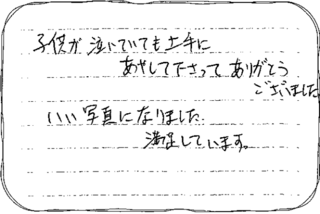 子供が泣いていても上手に
あやして下さって ありがとう
ございました
いい写真になりました
満足しています。